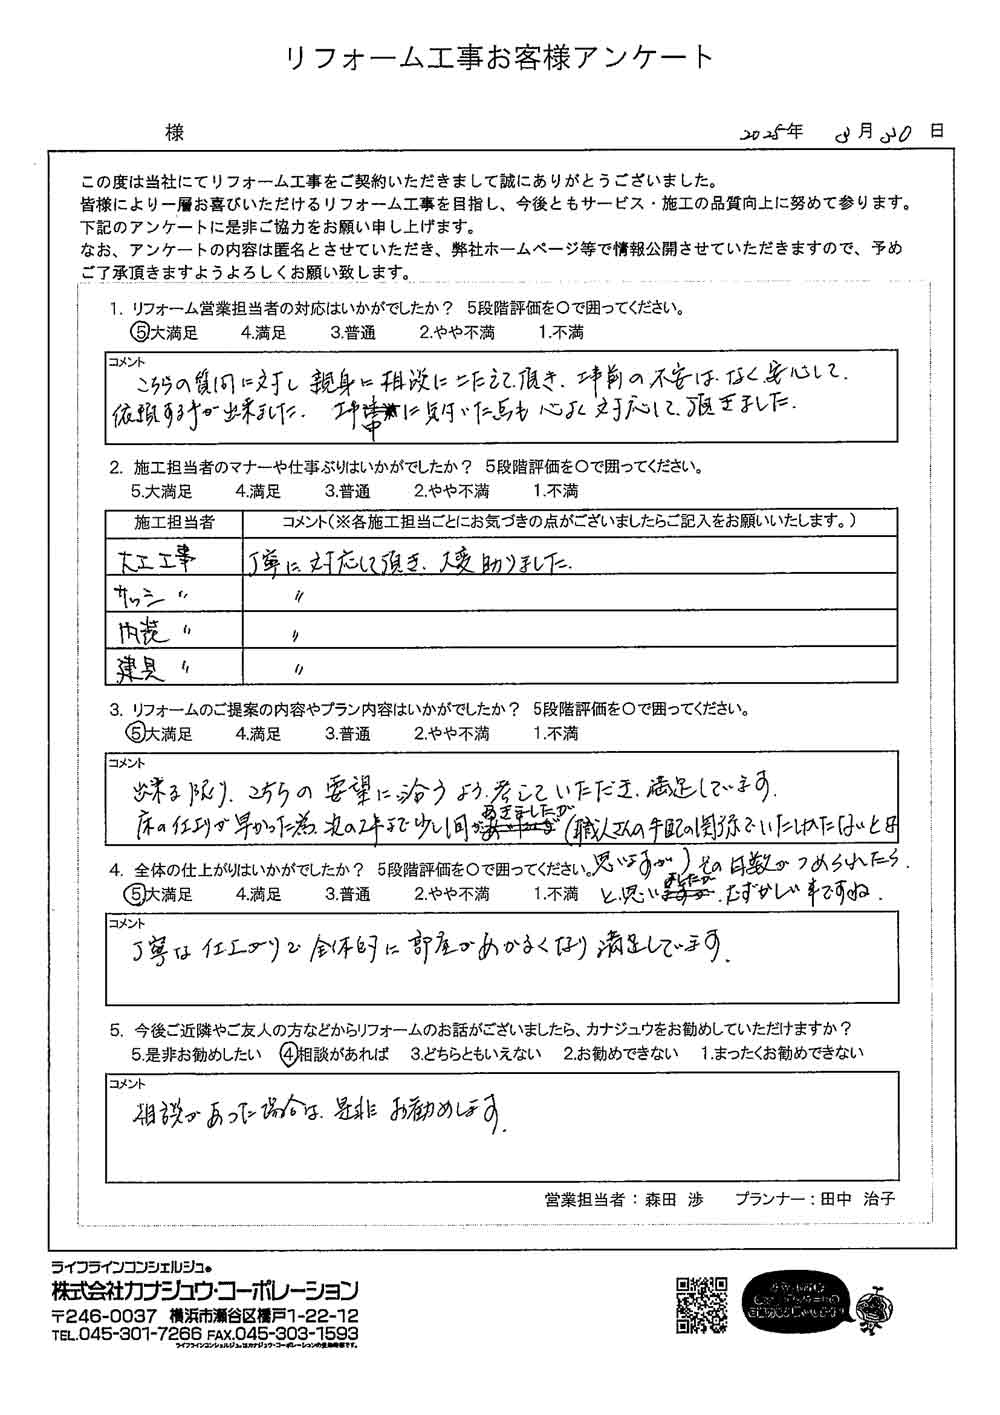 リフォーム工事お客様アンケート
様 2025年 3月30日
この度は当社にてリフォーム工事をご契約いただきまして誠にありがとうございました。
皆様により一層お喜びいただけるリフォーム工事を目指し、今後ともサービス・施工の品質向上に努めて参ります。
下記のアンケートに是非ご協力をお願い申し上げます。
なお、アンケートの内容は匿名とさせていただき、弊社ホームページ等で情報公開させていただきますので、予め
ご了承頂きますようよろしくお願い致します。
1. リフォーム営業担当者の対応はいかがでしたか? 5段階評価を○で囲ってください。
⑤大満足 4.満足 3.普通 2.やや不満 1.不満
コメント
こちらの質問に対し親身に相談にこたえて頂き、工事前の不安はなく安心して、
依頼する事が出来ました。工事中に気付いた点も心よく対応して頂きました。
2. 施工担当者のマナーや仕事ぶりはいかがでしたか? 5段階評価を○で囲ってください。
5.大満足 4.満足 3.普通 2.やや不満 1.不満
施工担当者 コメント(※各施工担当ごとにお気づきの点がございましたらご記入をお願いいたします。)
大工工事 丁寧に対応して頂き、大変助りました。
サッシ 〃 〃
内装 〃 〃
建具 〃 〃
3. リフォームのご提案の内容やプラン内容はいかがでしたか? 5段階評価を○で囲ってください。
⑤大満足 4.満足 3.普通 2.やや不満 1.不満
コメント
出来る限り、こちらの要望に沿うよう、考えていただき、満足しています。
床の仕上りが早かった為、次の工事まで少し間があきましたが(職人さんの手配の関係でいたしかたないとは
思いますが)その日数がつめられたら、
と思いましたが、むずかしい事ですね。
4. 全体の仕上がりはいかがでしたか? 5段階評価を○で囲ってください。
⑤大満足 4.満足 3.普通 2.やや不満 1.不満
コメント
丁寧な仕上がりで全体的に部屋があかるくなり満足しています。
5. 今後ご近隣やご友人の方などからリフォームのお話がございましたら、カナジュウをお勧めしていただけますか?
5.是非お勧めしたい ④相談があれば 3.どちらともいえない 2.お勧めできない 1.まったくお勧めできない
コメント
相談があった場合は、是非にお勧めします。
営業担当者:森田 渉 プランナー:田中 治子
ライフラインコンシェルジュ®
株式会社カナジュウ・コーポレーション
〒246-0037 横浜市瀬谷区橋戸1-22-12
TEL.045-301-7266 FAX.045-303-1593
ライフラインコンシェルジュ®はカナジュウ・コーポレーションの登録商標です。